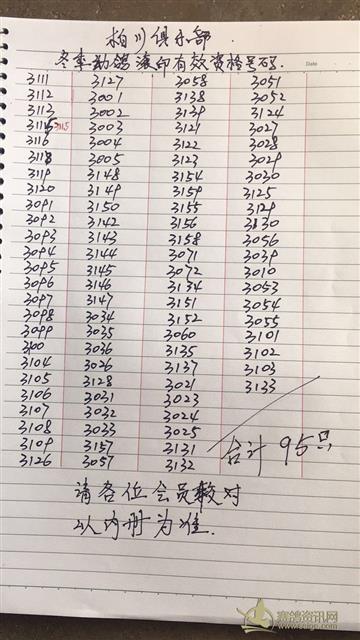 柏川俱乐部
冬季幼鸽滴印有效资格号码.
Date
3111 3127 3058 3051
3112 3001 3138 3052
3113 3002 3139 3124
3115 3115 3003 3121 3027
3116 3004 3122 3028
3118 3005 3123 3029
3119 3148 3154 3030
3120 3149 3159 3125
3091 3150 3155 3129
3092 3142 3156 3130
3093 3143 3158 3056
3094 3144 3071 3039
3095 3145 3072 3010
3096 3146 3134 3053
3097 3147 3151 3054
3098 3034 3152 3055
3099 3035 3060 3101
3100 3036 3135 3102
3104 3026 3137 3103
3105 3128 3021 3133
3106 3031 3023
3107 3032 3024
3108 3033 3025
3109 3157 3131 合计 95只
3126 3057 3132
请各位会员较对
以内册为准.
赛鸽资讯网